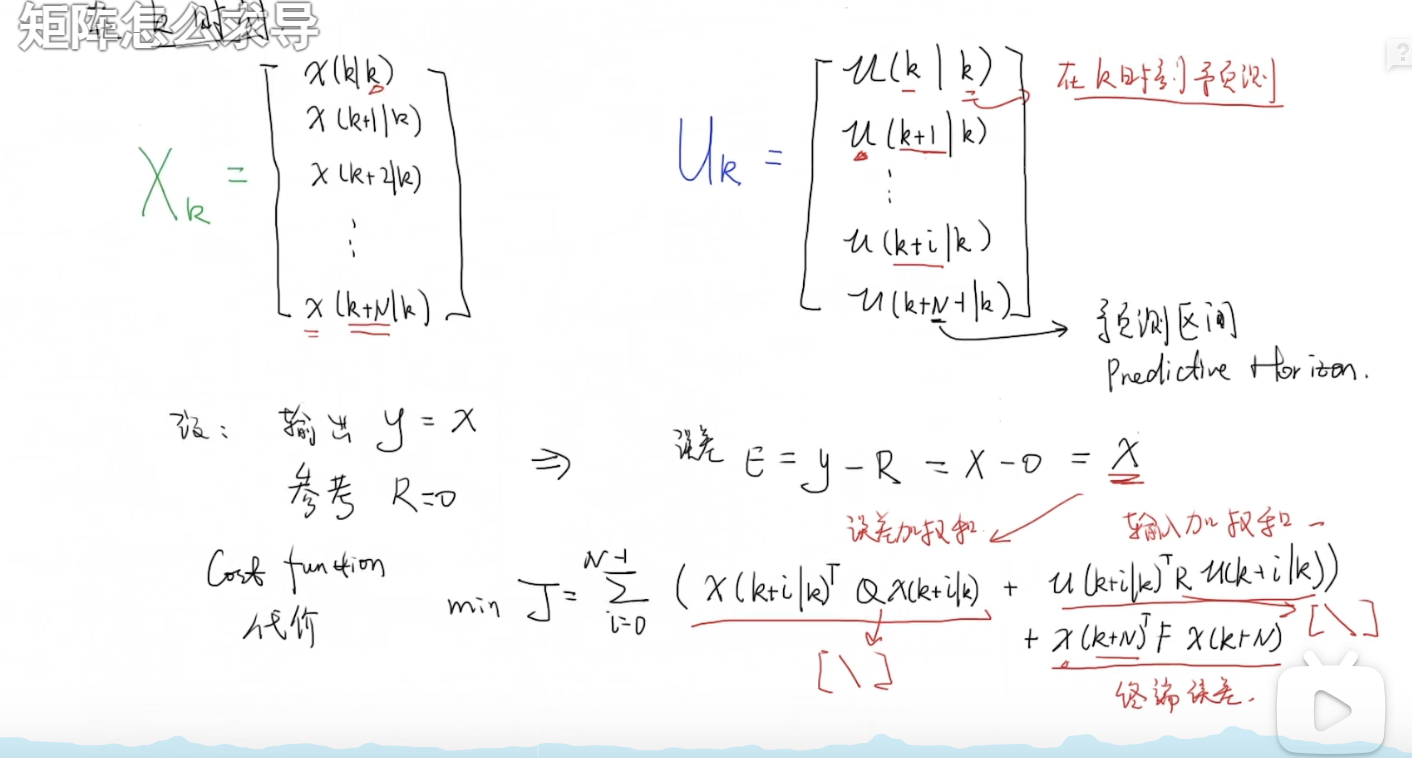 矩阵怎么求导
在 k 时刻
X_k = [ x(k|k)
x(k+1|k)
x(k+2|k)
⋮
x(k+N|k) ]
U_k = [ u(k|k)
u(k+1|k)
⋮
u(k+i|k)
u(k+N-1|k) ]
在k时刻予页测
予页测区间
Predictive Horizon.
设： 输出 y = x
参考 R=0
⇒ 误差 E = y - R = x - 0 = x
误差加权和
输入加权和
Cost function
代价
min J = Σ_{i=0}^{N-1} ( x(k+i|k)^T Q x(k+i|k) + u(k+i|k)^T R u(k+i|k))
+ x(k+N)^T F x(k+N)
[\]
[\]
终端误差.
?